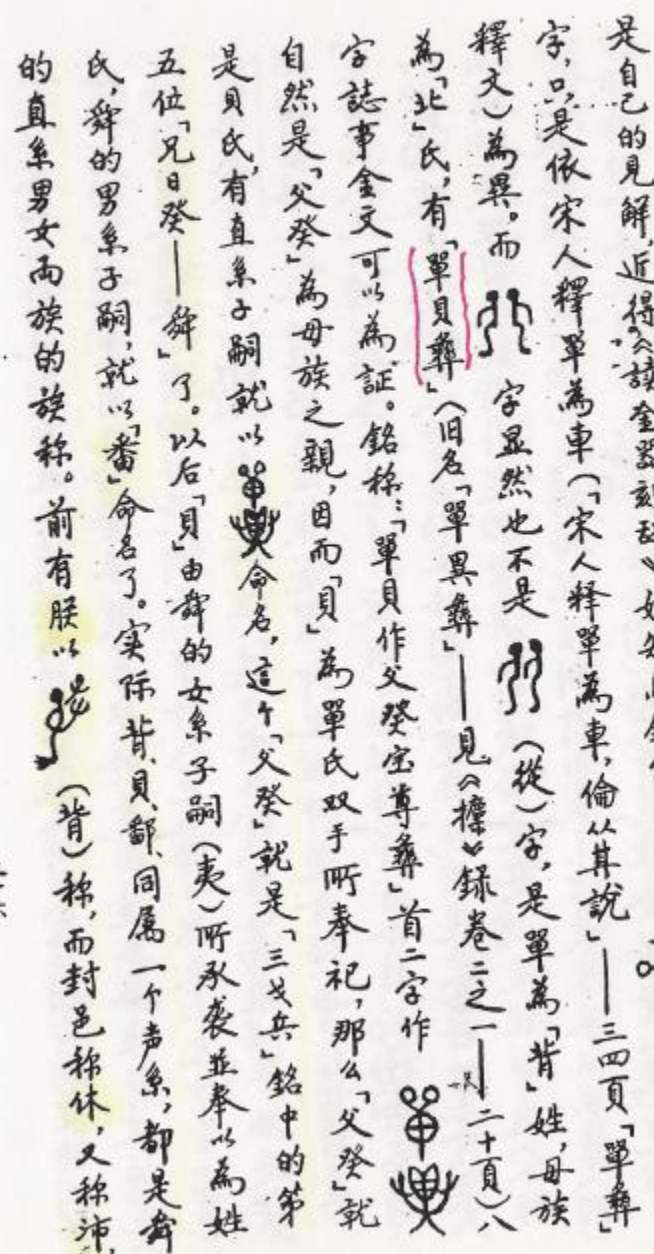 是自己的見解,近得《讀金器刻
字,只是依宋人釋單為車(「宋人释單為車,倫从其說」——三四頁「單彝」
釋文)為異。而 字显然也不是 (從)字,是單為「背」姓,母族
為「北」氏,有「單貝彝」(旧名「單異彝」——見《攈》錄卷二之一——二十頁)八
字誌事金文可以為証。銘称:「單貝作父癸宝尊彝」首二字作
自然是「父癸」為母族之親,因而「貝」為單氏双手所奉祀,那么「父癸」就
是貝氏,有直系子嗣就以 命名,這个「父癸」就是「三戈兵」銘中的第
五位「兄日癸——舜」了。以后「貝」由舜的女系子嗣(夷)所承袭並奉以為姓
氏,舜的男系子嗣,就以「番」命名了。实际背、貝、鄱、同属一个声系,都是舜
的直系男女两族的族称。前有朕以 (背)称,而封邑称休,又称沛,